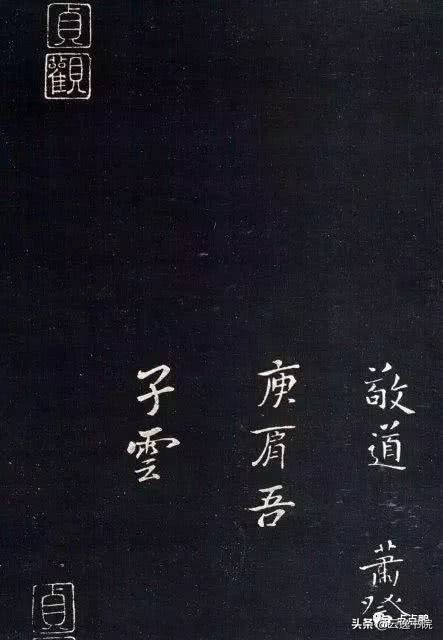 敬道 蕭
庾肩吾
子雲
貞觀
貞
头条
书院